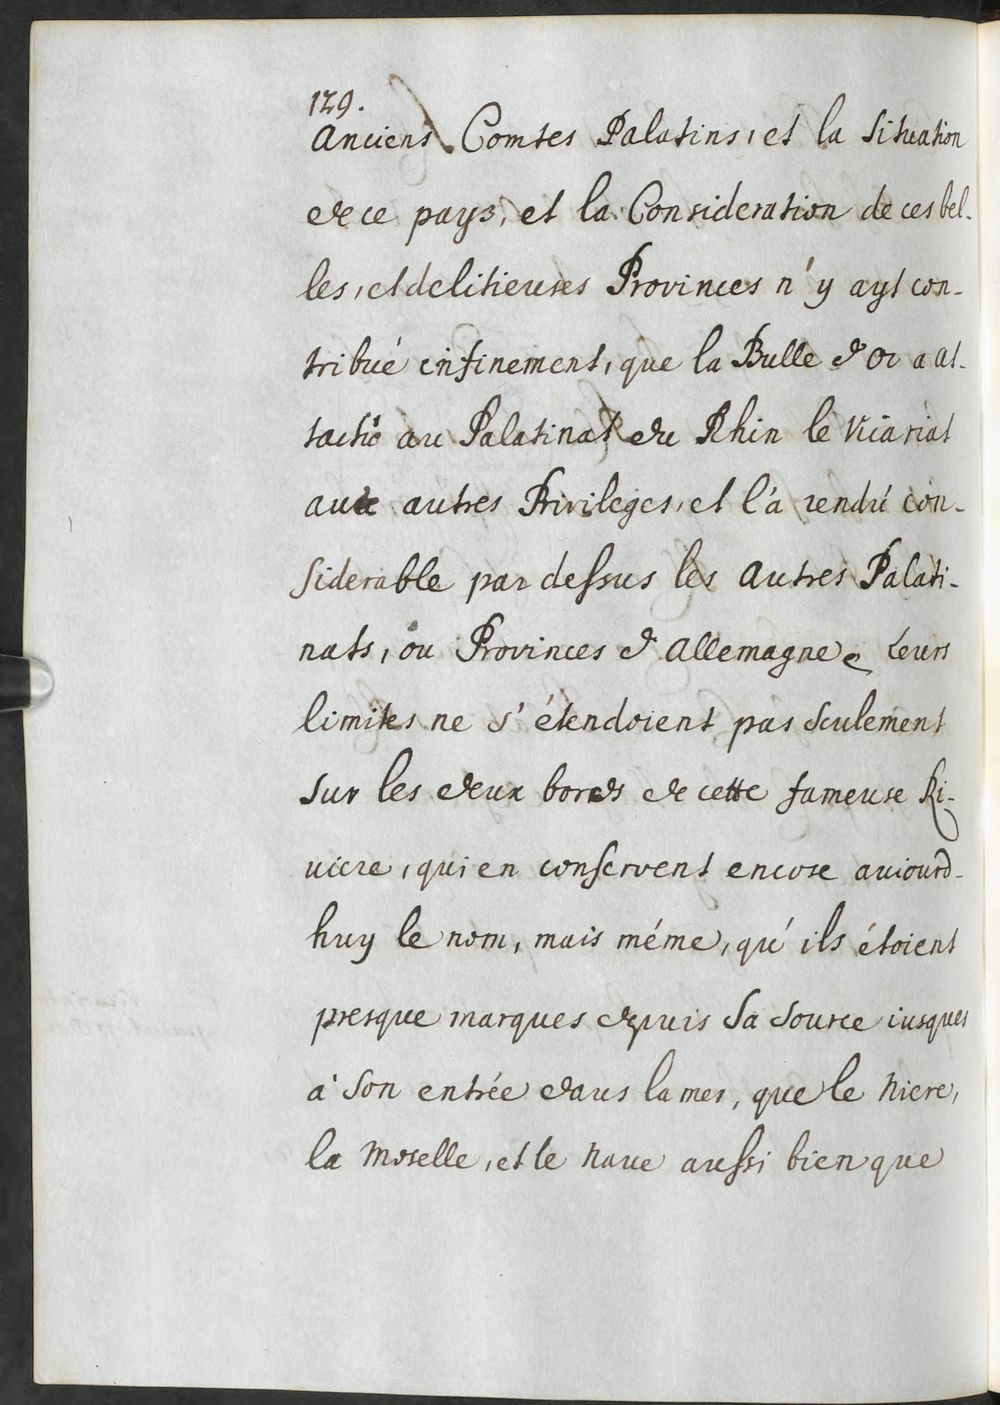 129.
Anciens Comtes Palatins, et la Situation
de ce pays, et la Consideration de ces bel-
les, et delitieuses Provinces n'y ayt con-
tribué infinement, que la Bulle d'Or a at-
taché au Palatinat du Rhin le Vicariat
aux autres Privileges, et l'a rendú con-
siderable par dessus les autres Palati-
nats, ou Provinces d'Allemagne, Leurs
limites ne s'étendoient pas Seulement
Sur les deux bords de cette fameuse Ri-
viere, qui en conservent encore aujourd-
huy le nom, mais méme, qu'ils étoient
presque marques depuis Sa Source iusques
a Son entrée dans la mer, que le Niere,
la Moselle, et le Nave aussi bien que